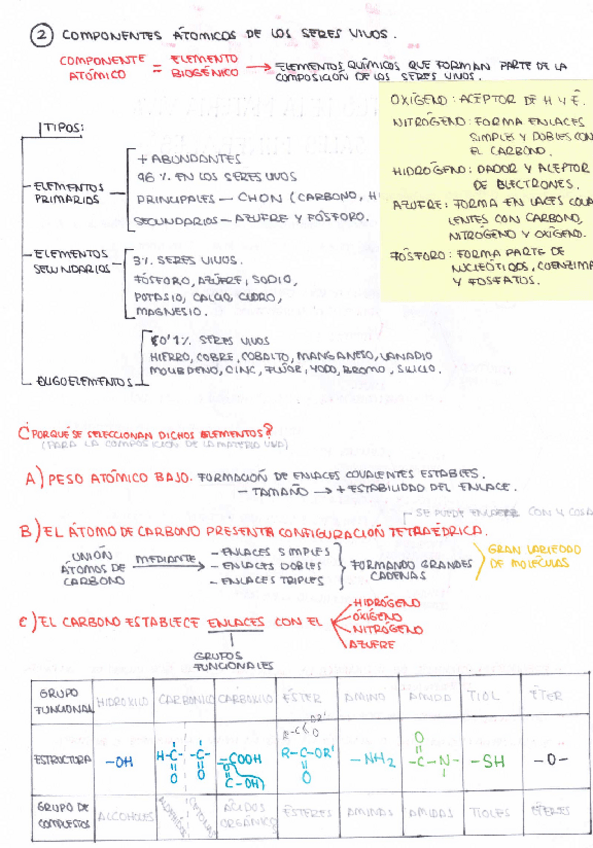 2 COMPONENTES ÁTOMICOS DE LOS SERES VIVOS.
COMPONENTE ATÓMICO = ELEMENTO BIOGÉNICO → ELEMENTOS QUÍMICOS QUE FORMAN PARTE DE LA
COMPOSICIÓN DE LOS SERES VIVOS.
OXÍGENO: ACEPTOR DE H Y Ē.
NITRÓGENO: FORMA ENLACES
SIMPLES Y DOBLES CON
EL CARBONO.
HIDRÓGENO: DADOR Y ACEPTOR
DE ELECTRONES.
AZUFRE: FORMA EN LACES COVA
LENTES CON CARBONO,
NITRÓGENO Y OXÍGENO.
FÓSFORO: FORMA PARTE DE
NUCLEÓTIDOS, COENZIMA
Y FOSFATOS.
TIPOS:
ELEMENTOS
PRIMARIOS
+ ABUNDANTES
96 % EN LOS SERES VIVOS
PRINCIPALES — CHON (CARBONO, H
SECUNDARIOS — AZUFRE Y FÓSFORO.
ELEMENTOS
SECUNDARIOS
3% SERES VIVOS.
FÓSFORO, AZUFRE, SODIO,
POTASIO, CALCIO, CLORO,
MAGNESIO.
OLIGOELEMENTOS
<0'1% SERES VIVOS
HIERRO, COBRE, COBALTO, MANGANESO, VANADIO
MOLIBDENO, CINC, FLÚOR, YODO, BROMO, SILICIO.
¿PORQUÉ SE SELECCIONAN DICHOS ELEMENTOS?
(PARA LA COMPOSICIÓN DE LA MATERIA VIVA)
A) PESO ATÓMICO BAJO. FORMACIÓN DE ENLACES COVALENTES ESTABLES.
- TAMAÑO → + ESTABILIDAD DEL ENLACE.
SE PUEDE ENLAZAR CON 4 COSA
B) EL ÁTOMO DE CARBONO PRESENTA CONFIGURACIÓN TETRAÉDRICA.
UNIÓN
ÁTOMOS DE
CARBONO
MEDIANTE
- ENLACES SIMPLES
- ENLACES DOBLES
- ENLACES TRIPLES
FORMANDO GRANDES
CADENAS
GRAN VARIEDAD
DE MOLÉCULAS
C) EL CARBONO ESTABLECE ENLACES CON EL
HIDRÓGENO
OXÍGENO
NITRÓGENO
AZUFRE
GRUPOS
FUNCIONALES
GRUPO FUNCIONAL HIDROXILO CARBONILO CARBOXILO ÉSTER AMINO AMIDO TIOL ÉTER
ESTRUCTURA -OH H-C- -C- O O -COOH C-OH O R-C OR' O R-C-OR' O -NH2 O -C-N- -SH -O-
GRUPO DE COMPUESTOS ALCOHOLES ALDEHÍDOS CETONAS ÁCIDOS ORGÁNICOS ÉSTERES AMINAS AMIDAS TIOLES ÉTERES